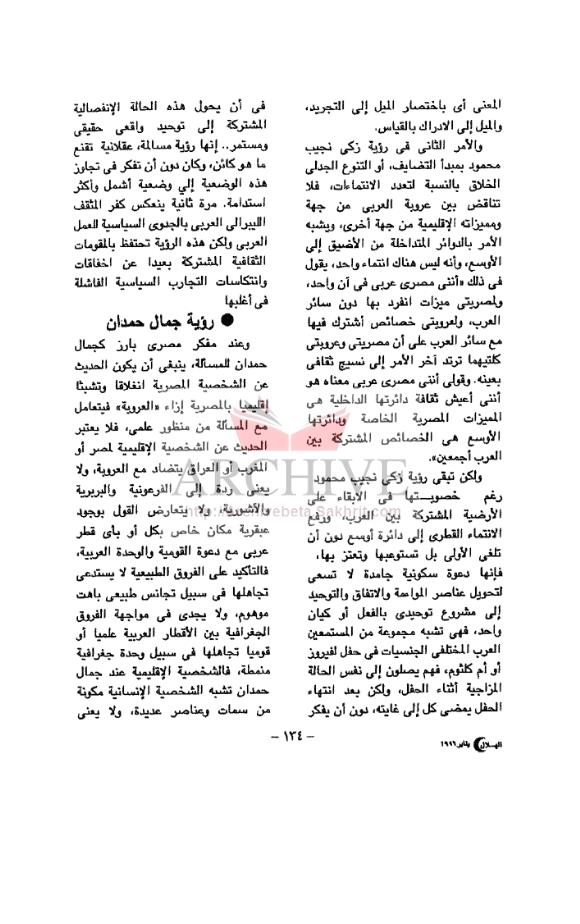 المعنى أى باختصار الميل إلى التجريد،
والميل إلى الادراك بالقياس.
والأمر الثانى فى رؤية زكى نجيب
محمود بمبدأ التضايف، أو التنوع الجدلى
الخلاق بالنسبة لتعدد الانتماءات، فلا
تناقض بين عروبة العربى من جهة
ومميزاته الإقليمية من جهة أخرى، ويشبه
الأمر بالدوائر المتداخلة من الأضيق إلى
الأوسع، وأنه ليس هناك انتماء واحد، يقول
فى ذلك «أننى مصرى عربى فى آن واحد،
ولمصريتى ميزات انفرد بها دون سائر
العرب، ولعروبتى خصائص أشترك فيها
مع سائر العرب على أن مصريتى وعروبتى
كلتيهما ترتد آخر الأمر إلى نسيج ثقافى
بعينه. وقولى أننى مصرى عربى معناه هو
أننى أعيش ثقافة دائرتها الداخلية هى
المميزات المصرية الخاصة ودائرتها
الأوسع هى الخصائص المشتركة بين
العرب أجمعين».
ولكن تبقى رؤية زكى نجيب محمود
رغم خصوبـــتها فى الابقاء على
الأرضية المشتركة بين العرب، ورفع
الانتماء القطرى إلى دائرة أوسع دون أن
تلغى الأولى بل تستوعبها وتعتز بها،
فإنها دعوة سكونية جامدة لا تسعى
لتحويل عناصر المواحة والاتفاق والتوحيد
إلى مشروع توحيدى بالفعل أو كيان
واحد، فهى تشبه مجموعة من المستمعين
العرب المختلفى الجنسيات فى حفل لفيروز
أو أم كلثوم، فهم يصلون إلى نفس الحالة
المزاجية أثناء الحفل، ولكن بعد انتهاء
الحفل يمضى كل إلى غايته، دون أن يفكر
فى أن يحول هذه الحالة الإنفصالية
المشتركة إلى توحيد واقعى حقيقى
ومستمر.. إنها رؤية مسالمة، عقلانية تقنع
ما هو كائن، وكان دون أن تفكر فى تجاوز
هذه الوضعية إلي وضعية أشمل وأكثر
استدامة. مرة ثانية ينعكس كفر المثقف
الليبرالى العربى بالجدوى السياسية للعمل
العربى ولكن هذه الرؤية تحتفظ بالمقومات
الثقافية المشتركة بعيدا عن اخفاقات
وانتكاسات التجارب السياسية الفاشلة
فى أغلبها
● رؤية جمال حمدان
وعند مفكر مصرى بارز كجمال
حمدان للمسألة، ينبغى أن يكون الحديث
عن الشخصية المصرية انغلاقا وتشبثا
إقليميا بالمصرية إزاء «العروبة» فيتعامل
مع المسألة من منظور علمى، فلا يعتبر
الحديث عن الشخصية الإقليمية لمصر أو
المغرب أو العراق يتضاد مع العروبة، ولا
يعنى ردة إلى الفرعونية والبربرية
والأشورية، ولا يتعارض القول بوجود
عبقرية مكان خاص بكل أو بأى قطر
عربى مع دعوة القومية والوحدة العربية،
فالتأكيد على الفروق الطبيعية لا يستدعى
تجاهلها فى سبيل تجانس طبيعى باهت
موهوم، ولا يجدى فى مواجهة الفروق
الجغرافية بين الأقطار العربية علميا أو
قوميا تجاهلها فى سبيل وحدة جغرافية
منمطة، فالشخصية الإقليمية عند جمال
حمدان تشبه الشخصية الإنسانية مكونة
من سمات وعناصر عديدة، ولا يعنى
ARCHIVE
http://Archivebeta.Sakhrit.com
– ١٣٤ –
الهلال يناير ١٩٩٦